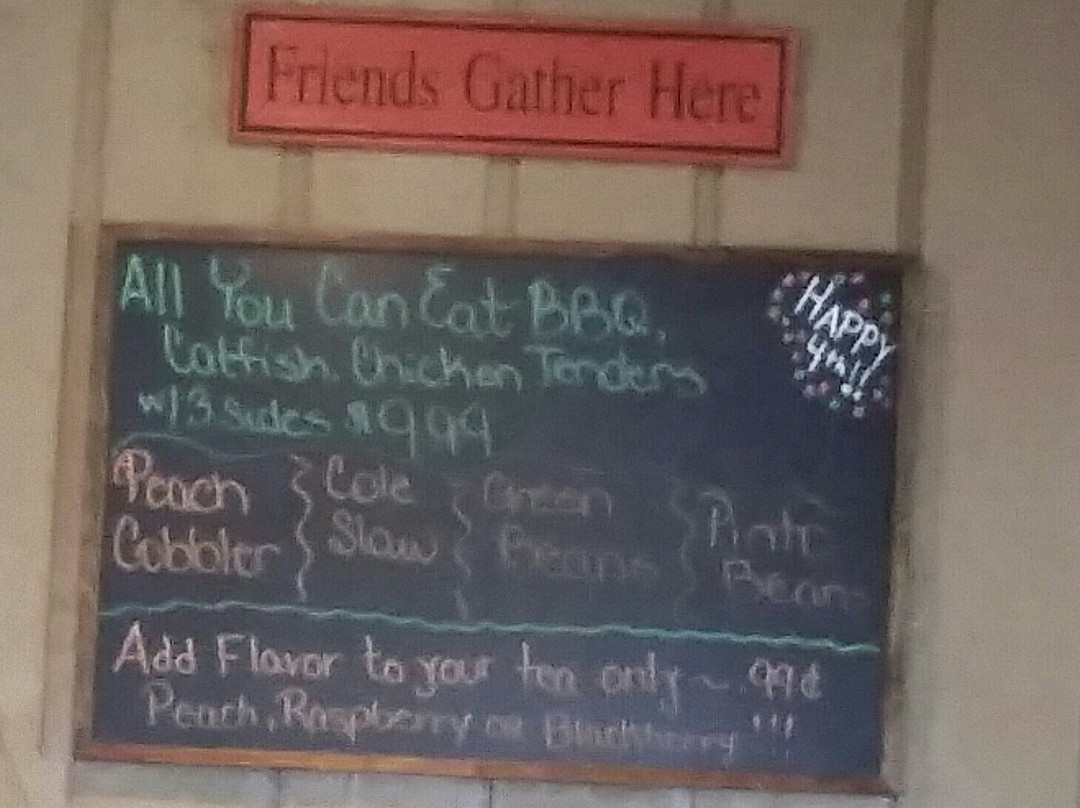 Friends Gather Here
All You Can Eat BBQ,
Catfish, Chicken Tenders
w/ 3 sides $9.99
HAPPY
4th!!
Peach
Cobbler
Cole
Slaw
Green
Beans
Pinto
Beans
Add Flavor to your tea only ~ .99¢
Peach, Raspberry or Blackberry !!!